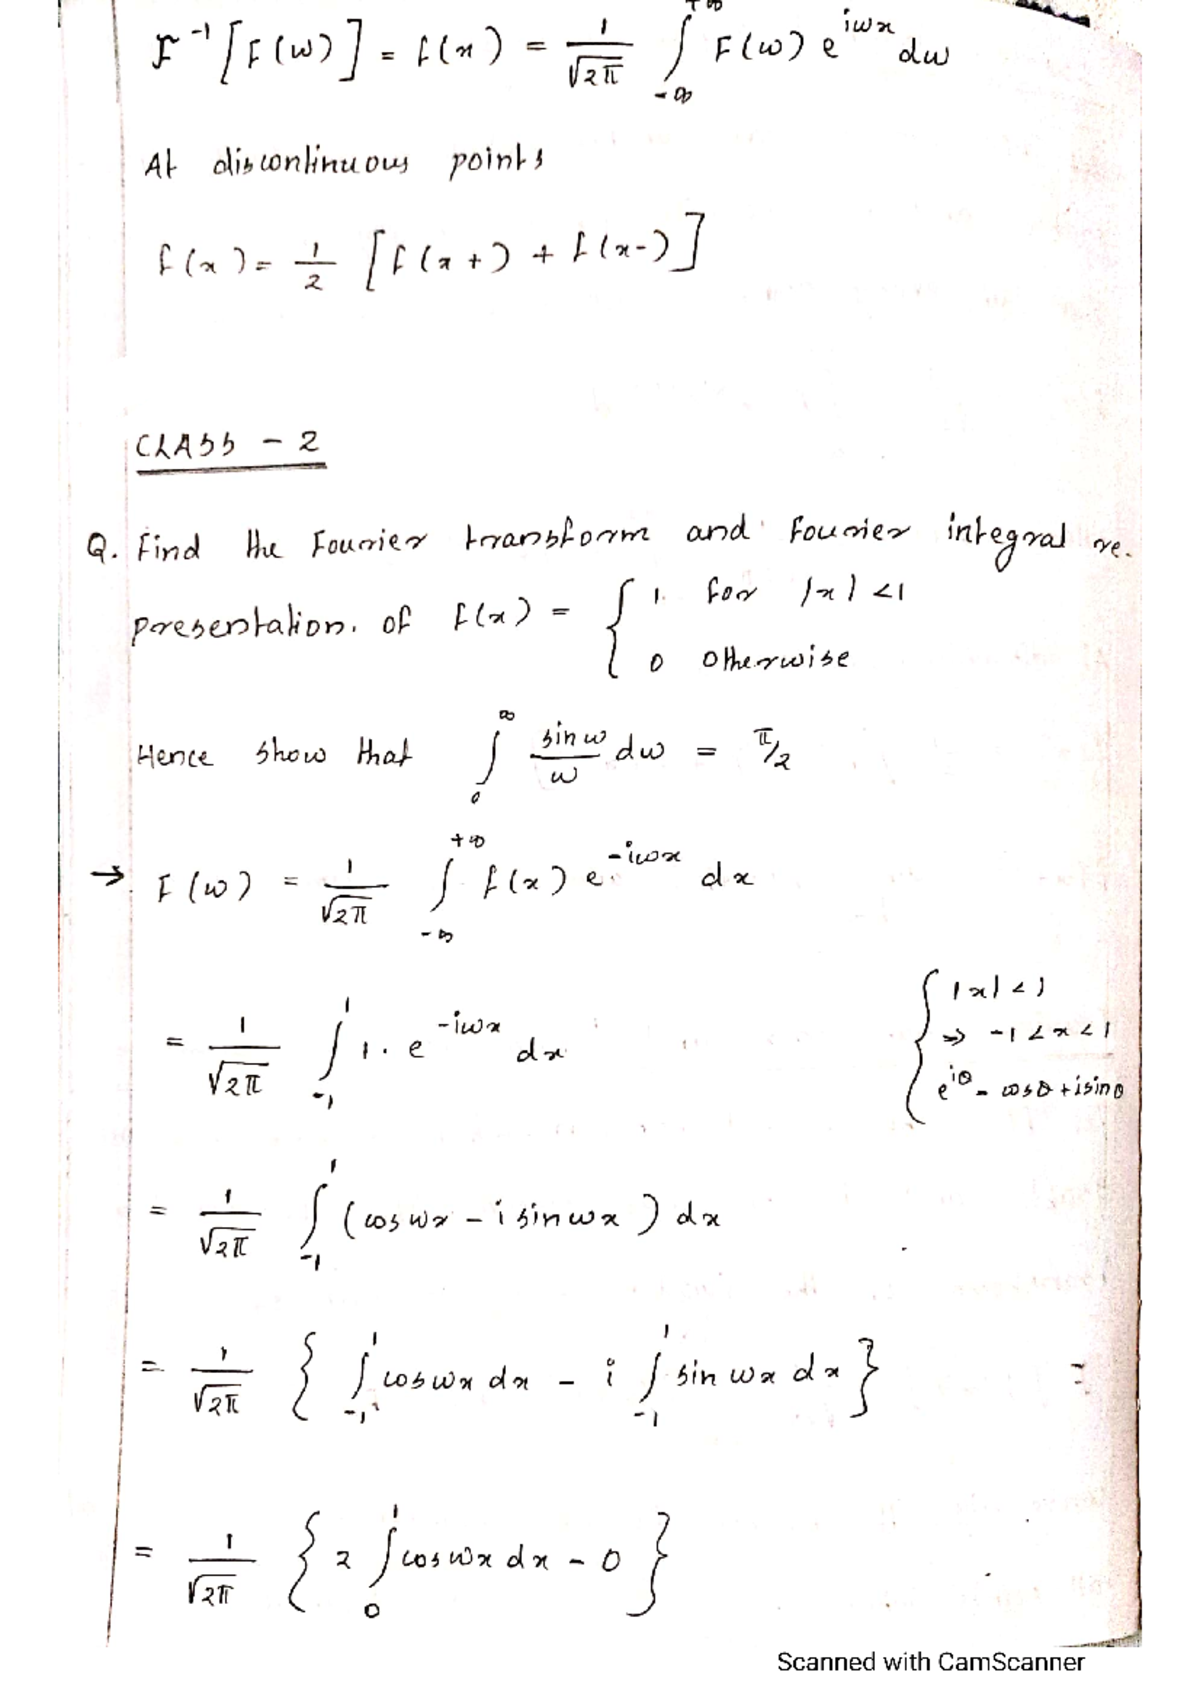 F⁻¹[F(w)] = f(x) = 1/√2π ∫_{-∞}^{+∞} F(w) e^{iwx} dw
At discontinuous points
f(x) = 1/2 [f(x+) + f(x-)]
CLASS - 2
Q. Find the Fourier transform and Fourier integral re-
presentation. of f(x) = { 1. for |x| <1
0 otherwise
Hence show that ∫_0^∞ sin w/w dw = π/2
→ F(w) = 1/√2π ∫_{-∞}^{+∞} f(x) e^{-iwx} dx
= 1/√2π ∫_{-1}^{1} 1. e^{-iwx} dx
{ |x| < 1
⇒ -1 < x < 1
e^{iθ} = cosθ + isinθ
= 1/√2π ∫_{-1}^{1} (cos wx - i sin wx) dx
= 1/√2π { ∫_{-1}^{1} cos wx dx - i ∫_{-1}^{1} sin wx dx }
=
= 1/√2π { 2 ∫_0^1 cos wx dx - 0 }
Scanned with CamScanner